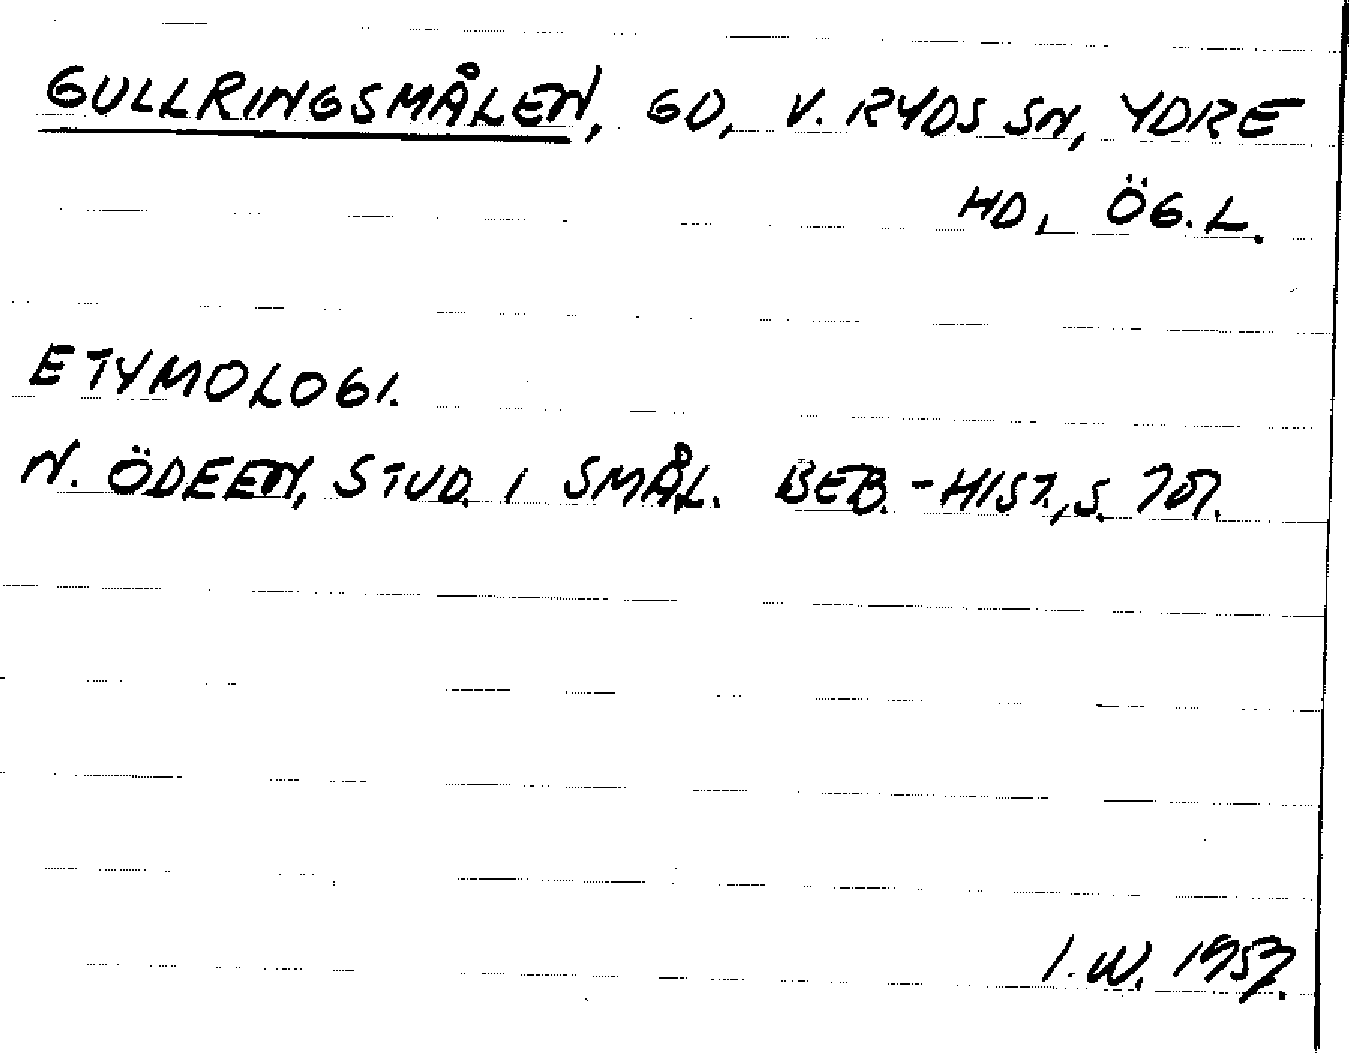 GULLRINGSMÅLEN, GD, V. RYDS SN, YDRE
HD, ÖG.L.
ETYMOLOGI.
N. ÖDEEN, STUD. I SMÅL. BEB.-HIST., S.
I.W. 1957.